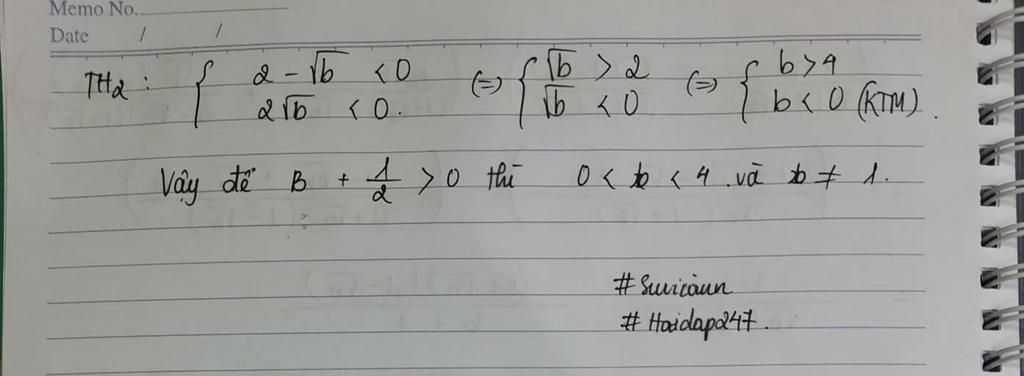 Memo No.
Date / /
TH2 : { 2 - √b < 0 (=) { √b > 2 (=) { b > 4
2√b < 0. √b < 0 b < 0 (KTM).
Vậy để B + 1/2 > 0 thì 0 < b < 4 . và b ≠ 1.
# Hoidap247.